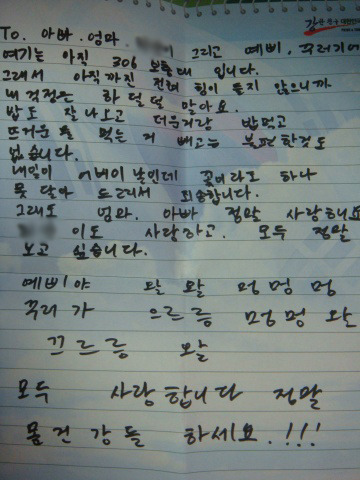 강한 친구 대한민국
To. 아빠. 엄마. 이 그리고 예삐. 꾸러기에게
여기는 아직 306 보충대 입니다.
그래서 아직까진 전혀 힘이 들지 않으니까
내 걱정은 하덜덜 말아요.
밥도 잘 나오고 더운거랑 밥먹고
뜨거운 물 먹는 거 빼고는 불편한것도
없습니다.
내일이 어버이 날인데 꽃이라도 하나
못 달아 드려서 죄송합니다.
그래도 엄마. 아빠 정말 사랑해요
이도 사랑하고. 모두 정말
보고 싶습니다.
예삐야 왈 왈 멍 멍 멍
꾸러기 으르릉 멍 멍 왈
끄르릉 왈
모두 사랑합니다 정말
몸 건강들 하세요.!!!